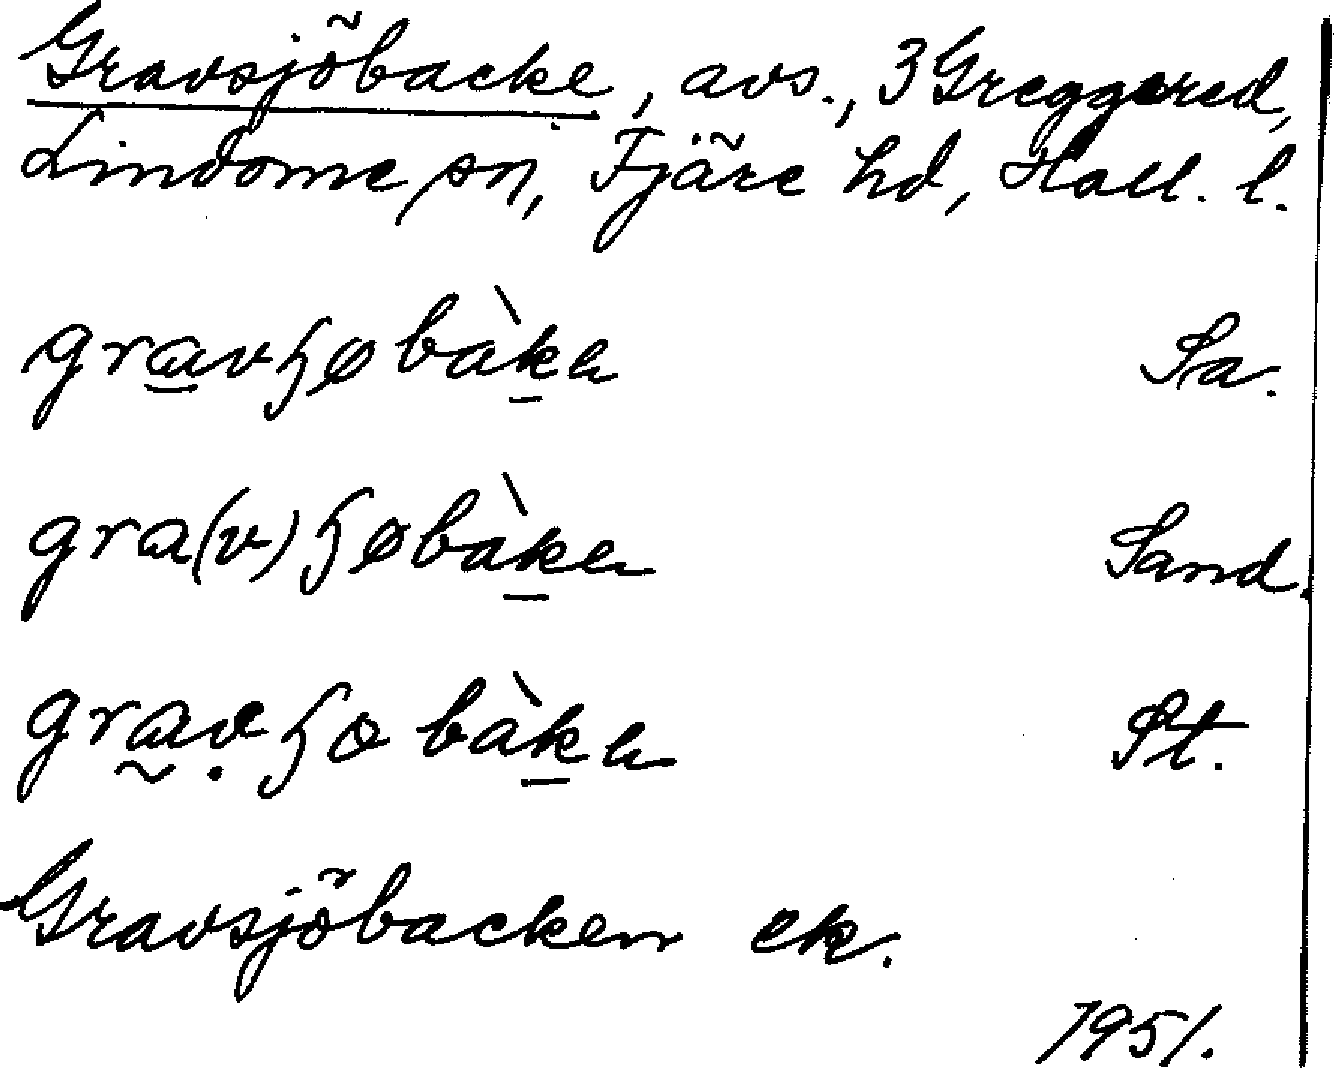 Gravsjöbacke, avs., 3 Greggered,
Lindome sn, Fjäre hd, Hall. l.
gravɧøbàkɐ Sa.
gra(v)ɧøbàkɐ Sand.
gravɧɔbàkɐ St.
Gravsjöbacken ek.
1951.